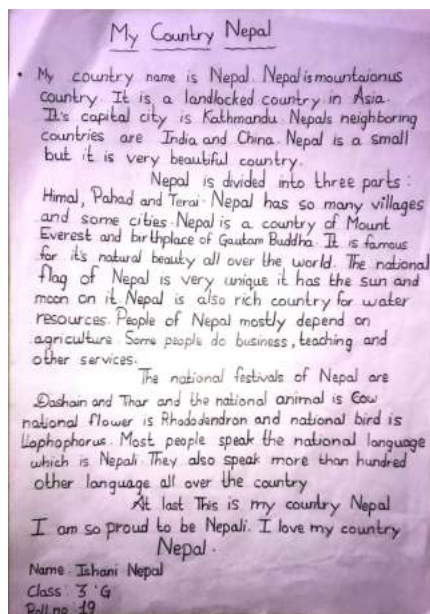 My Country Nepal
• My country name is Nepal. Nepal is mountaionus
country. It is a landlocked country in Asia.
It's capital city is Kathmandu. Nepals neighboring
countries are India and China. Nepal is a small
but it is very beautiful country.
Nepal is divided into three parts :
Himal, Pahad and Terai. Nepal has so many villages
and some cities. Nepal is a country of Mount
Everest and birthplace of Gautam Buddha. It is famous
for it's natural beauty all over the world. The national
flag of Nepal is very unique it has the sun and
moon on it. Nepal is also rich country for water
resources. People of Nepal mostly depend on
agriculture. Some people do business, teaching and
other services.
The national festivals of Nepal are
Dashain and Thar and the national animal is Cow
national flower is Rhododendron and national bird is
Llophophorus. Most people speak the national language
which is Nepali. They also speak more than hundred
other language all over the country
At last This is my country Nepal
I am so proud to be Nepali. I love my country
Nepal.
Name - Ishani Nepal
Class : 3 'G'
Roll no 19